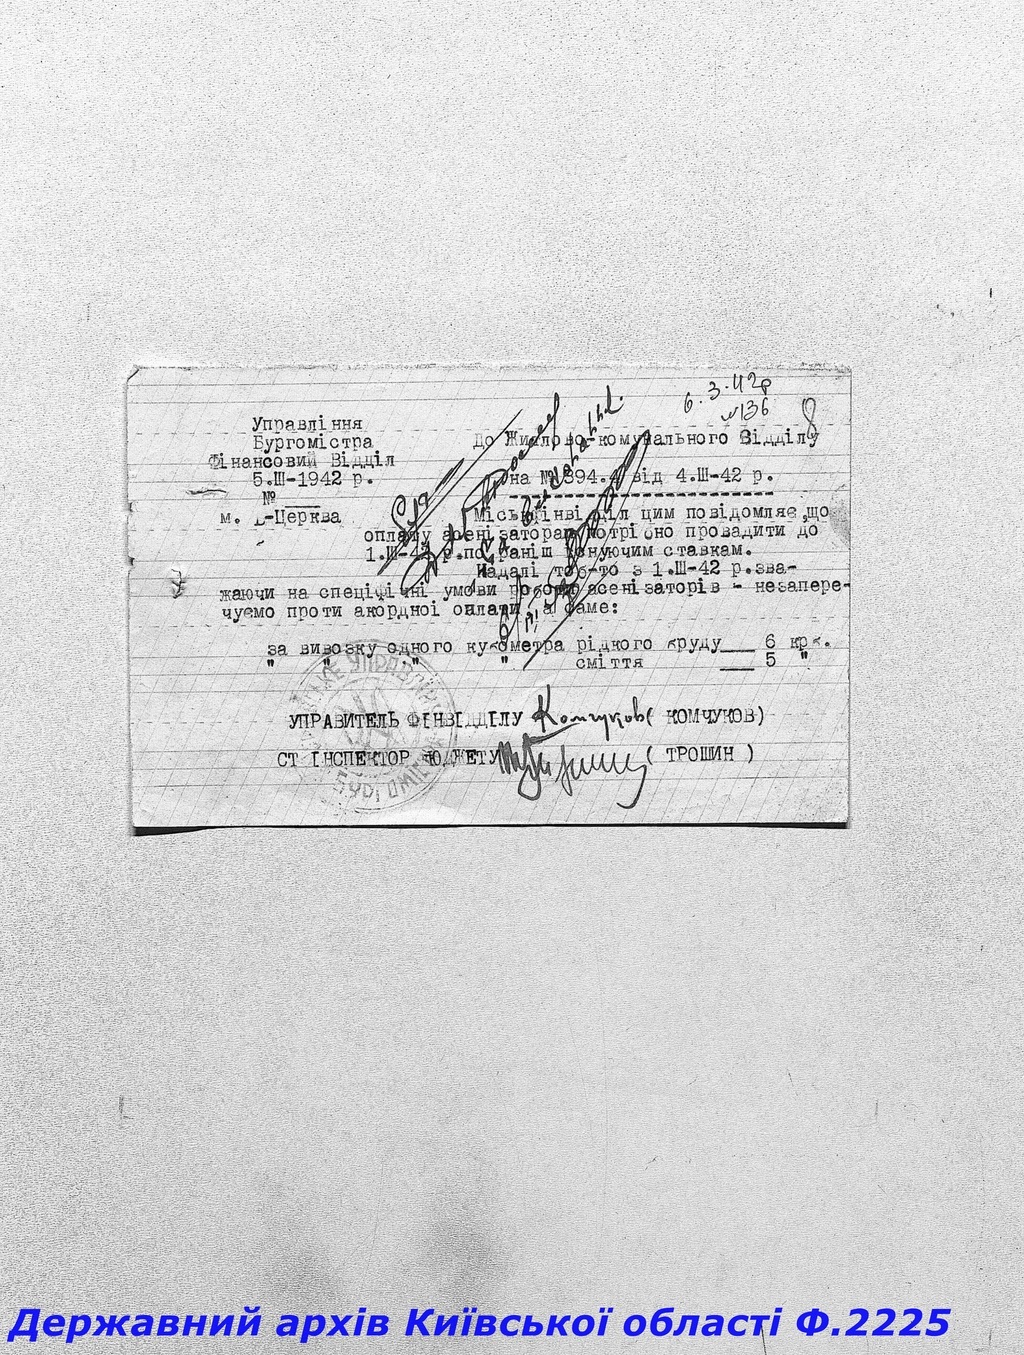 6.3.42р
№136
8
Управління
Бургомістра
Фінансовий Відділ
5.ІІІ-1942 р.
№ ___
м. Б-Церква
До Житлово-комунального Відділу
на №394. від 4.ІІІ-42 р.
Міськфінвідділ цим повідомляє,що
оплату асенізаторам потрібно провадити до
1.ІІІ-42 р.по раніш існуючим ставкам.
Надалі тоб-то з 1.ІІІ-42 р.зва-
жаючи на специфічні умови роботи асенізаторів - незапере-
чуємо проти акордної оплати, а саме:
за вивозку одного кубометра рідкого бруду___ 6 крб.
" " " " сміття ___ 5 "
УПРАВИТЕЛЬ ФІНВІДДІЛУ Комчуков ( КОМЧУКОВ)
СТ ІНСПЕКТОР БЮДЖЕТУ ( ТРОШИН )
Державний архів Київської області Ф.2225